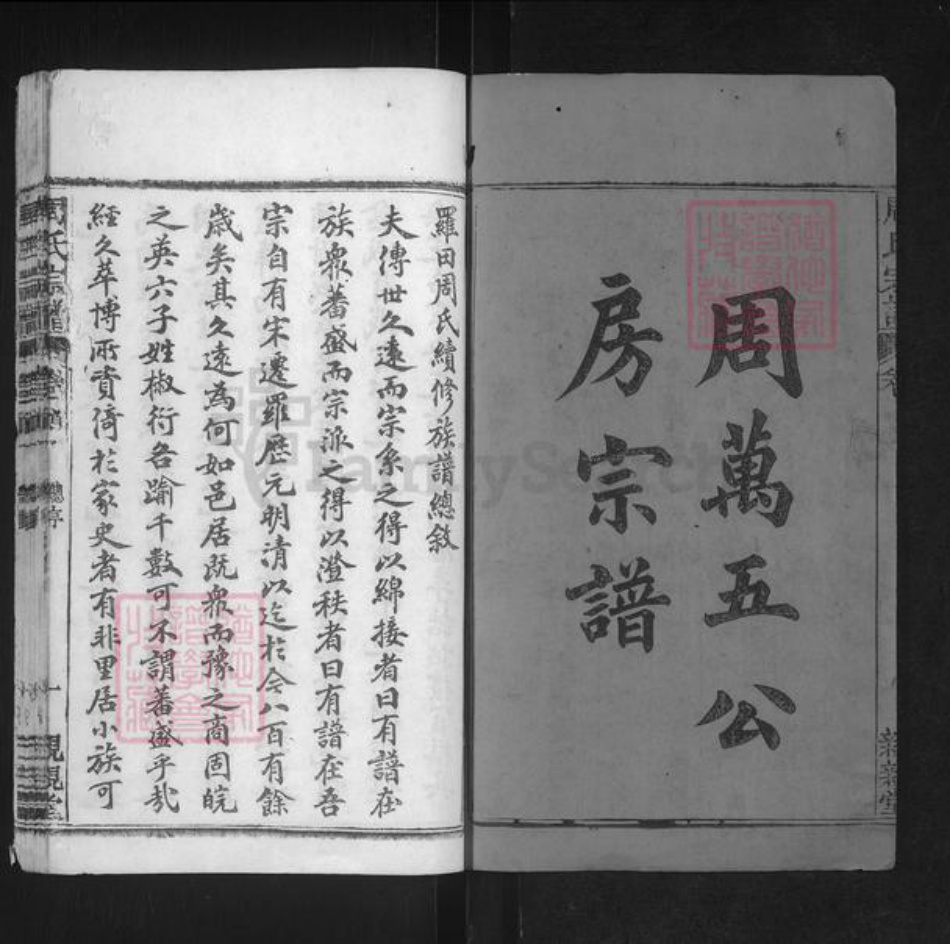 周萬五公
房宗譜
羅田周氏續修族譜總敘
夫傳世久遠而宗系之得以綿接者曰有譜在
族衆蕃盛而宗派之得以澄秩者曰有譜在吾
宗自有宋遷羅歷元明清以迄於今八百有餘
歲矣其久遠為何如邑居既衆而豫之商固皖
之英六子姓椒衍各踰千數可不謂蕃盛乎哉
經久萃博所賚倚於家史者有非里居小族可
周氏宗譜
總序
一
親親堂
FamilySearch